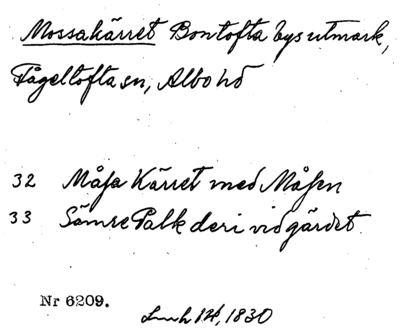 Mossakärret Bontofta bys utmark,
Fågeltofta sn, Albo hd
32 Måsa Kärret med Måsen
33 Sämre Palk deri vid gärdet
Nr 6209.
1830